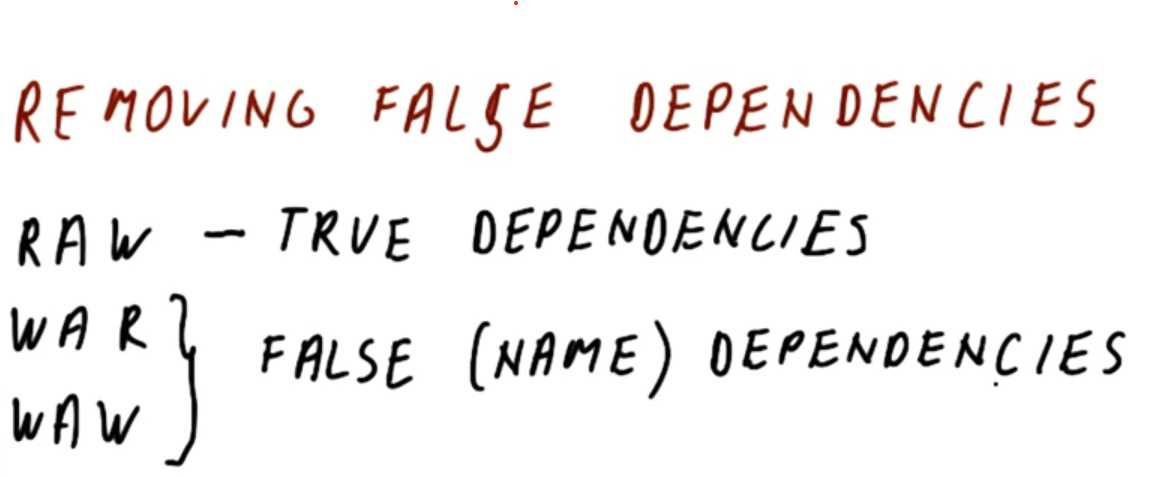 REMOVING FALSE DEPENDENCIES
RAW – TRUE DEPENDENCIES
WAR
WAW
FALSE (NAME) DEPENDENCIES